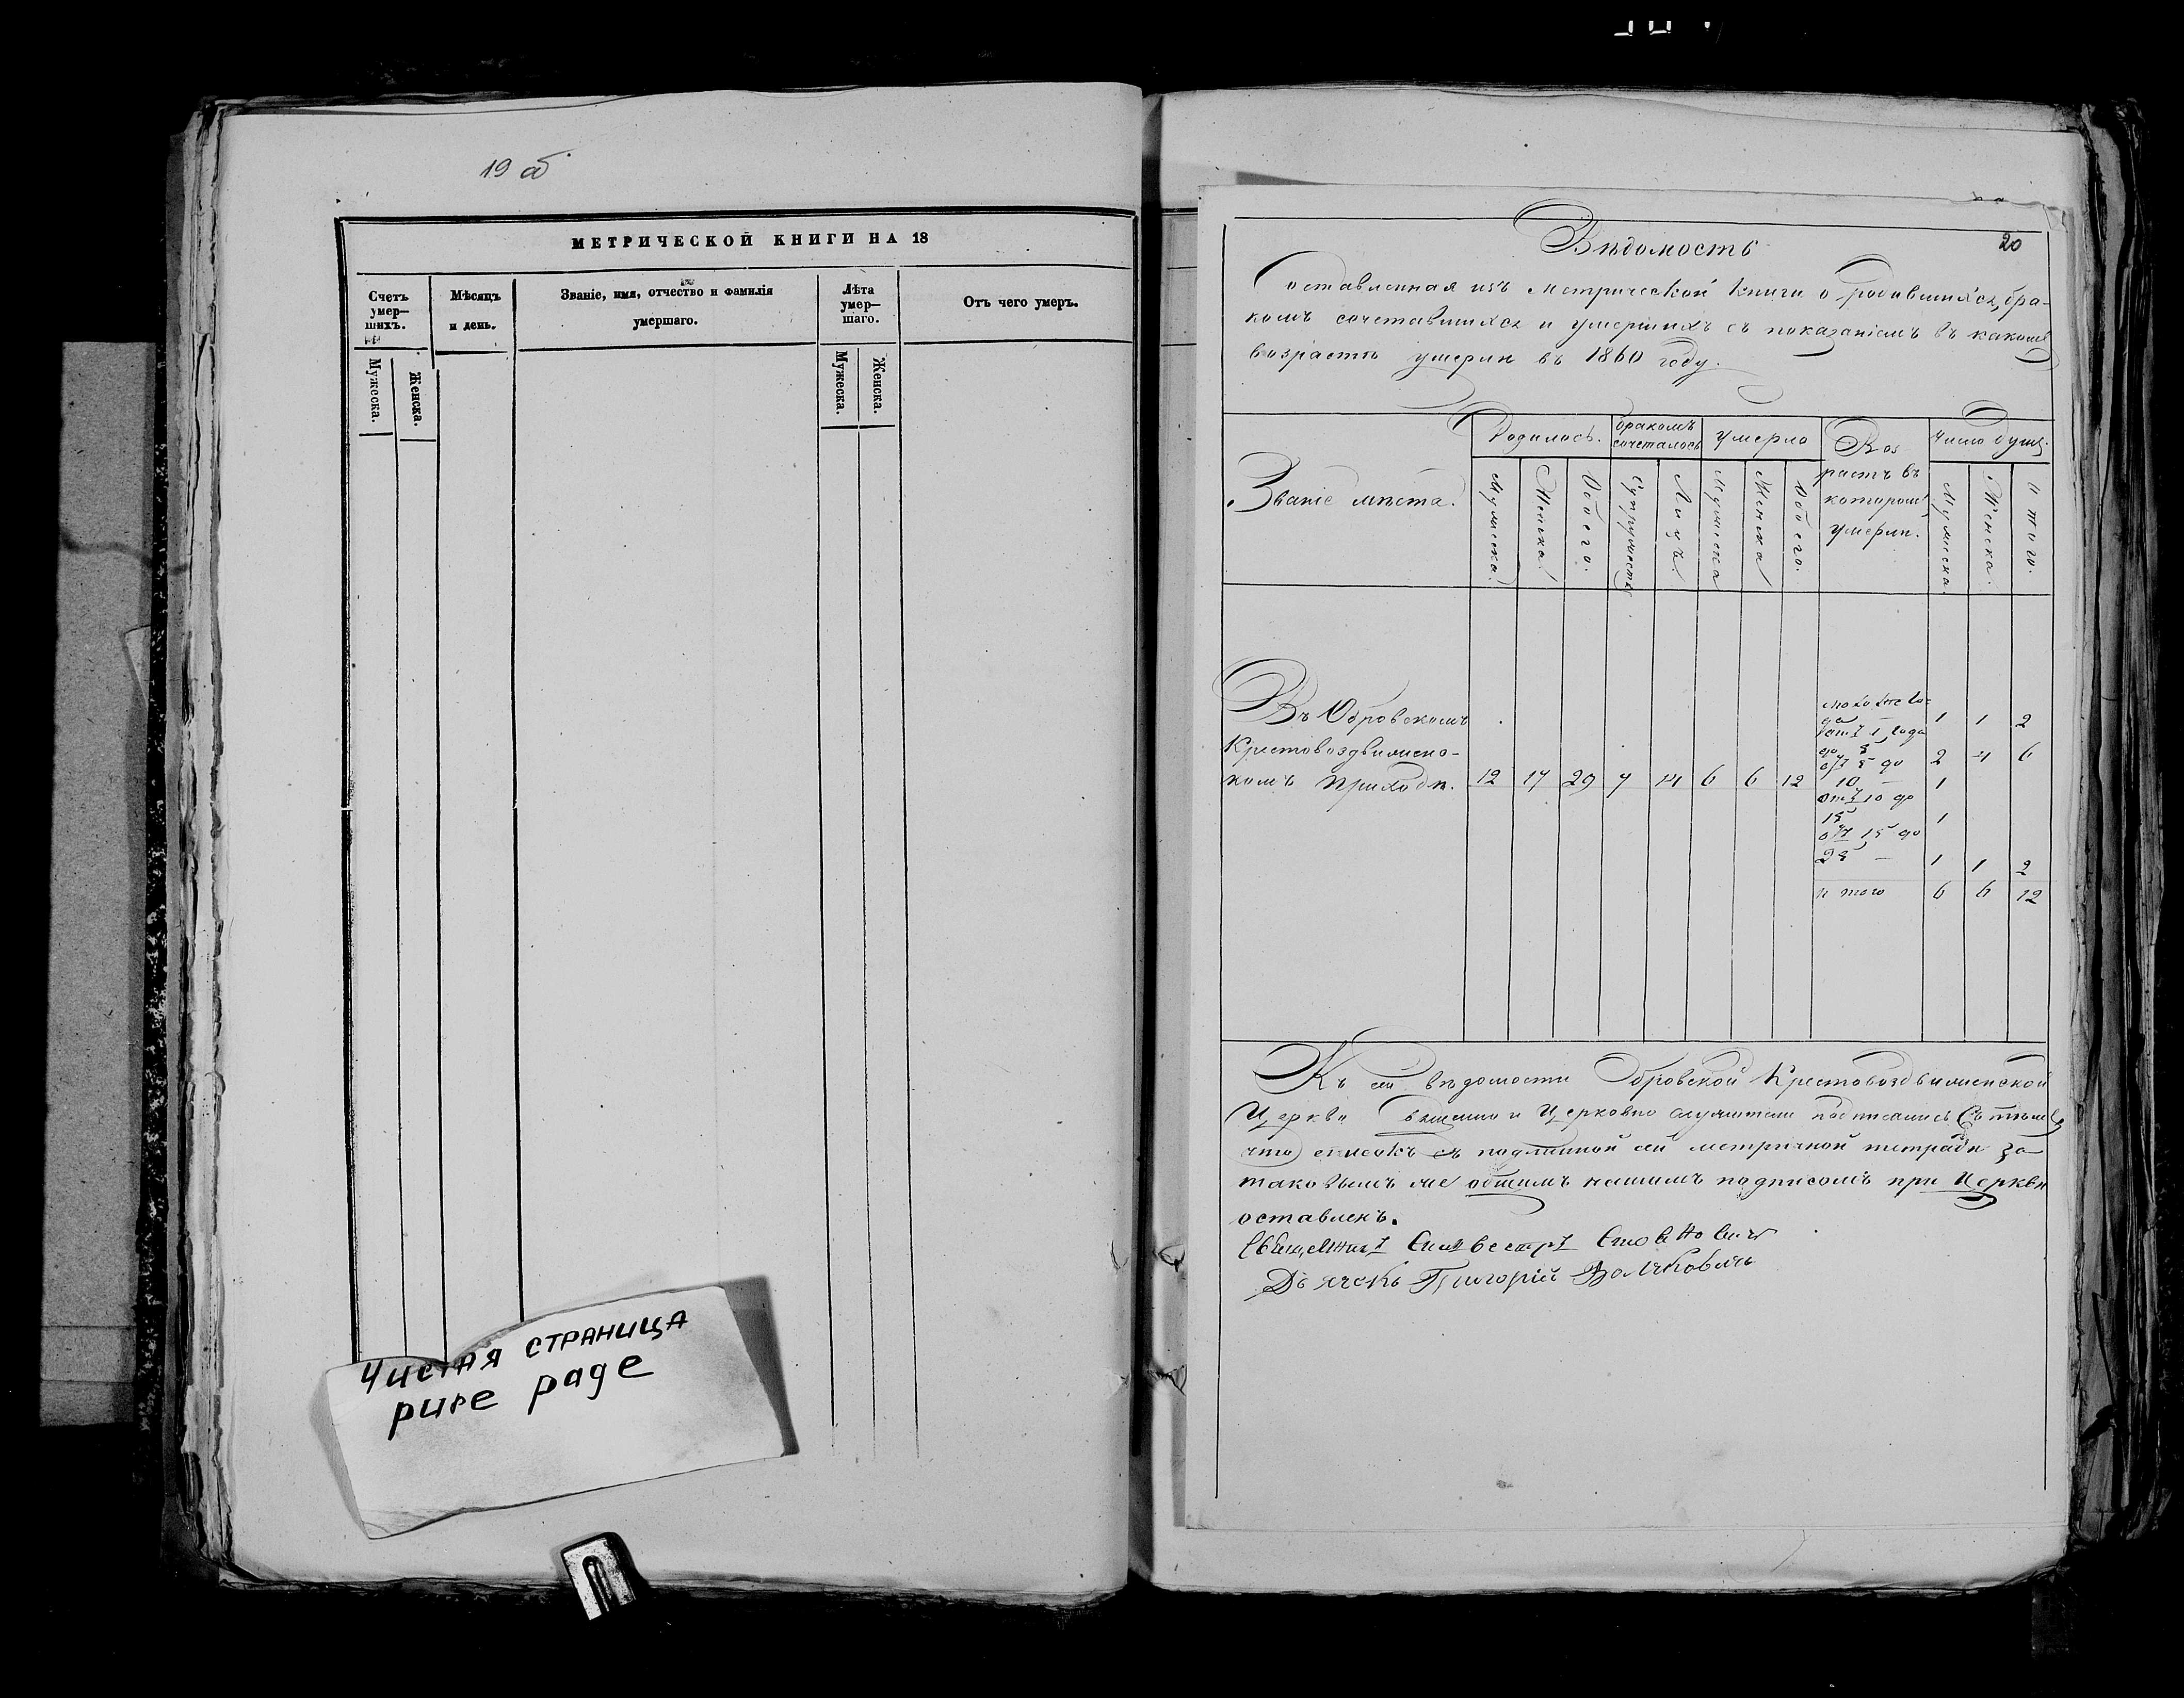 19 об
МЕТРИЧЕСКОЙ КНИГИ НА 18
Счетъ умер—шихъ.
Мѣсяцъ и день.
Званіе, имя, отчество и фамилія умершаго.
Лѣта умер—шаго.
Отъ чего умеръ.
Мужеска.
Женска.
Мужеска.
Женска.
Чистая страница
pure page
20
Вѣдомость
Составленная изъ Метрической книги о родившихся, бра-
комъ сочетавшихся и умершихъ съ показаніемъ въ какомъ
возрастѣ умерли въ 1860 году.
Званіе мѣста.
Родилось.
бракомъ сочеталось
умерло
Воз
растъ въ
которомъ
умерли.
число душъ.
Мужеска.
Женска
Обоего.
Супружествъ
Лицъ.
Мужеска
Женска
Обоего.
Мужеска
Женска.
Итого.
Въ Обровскомъ
Крестовоздвиженс-
комъ приходѣ. 12 17 29 7 14 6 6 12
да — 1 1 2
отъ 1 года
до 5 2 4 6
отъ 5 до
10 — 1
отъ 10 до
15 1
отъ 15 до
25 — 1 1 2
итого 6 6 12
Къ сей вѣдомости Обровской Крестовоздвиженской
Церкви Священно и Церковно служители подписались Съ тѣмъ
что списокъ съ подлинной сей метричной тетради за
таковымъ же общимъ нашимъ подписомъ при Церкви
оставленъ.
Священникъ Сильвестръ
Дьячекъ Григорій